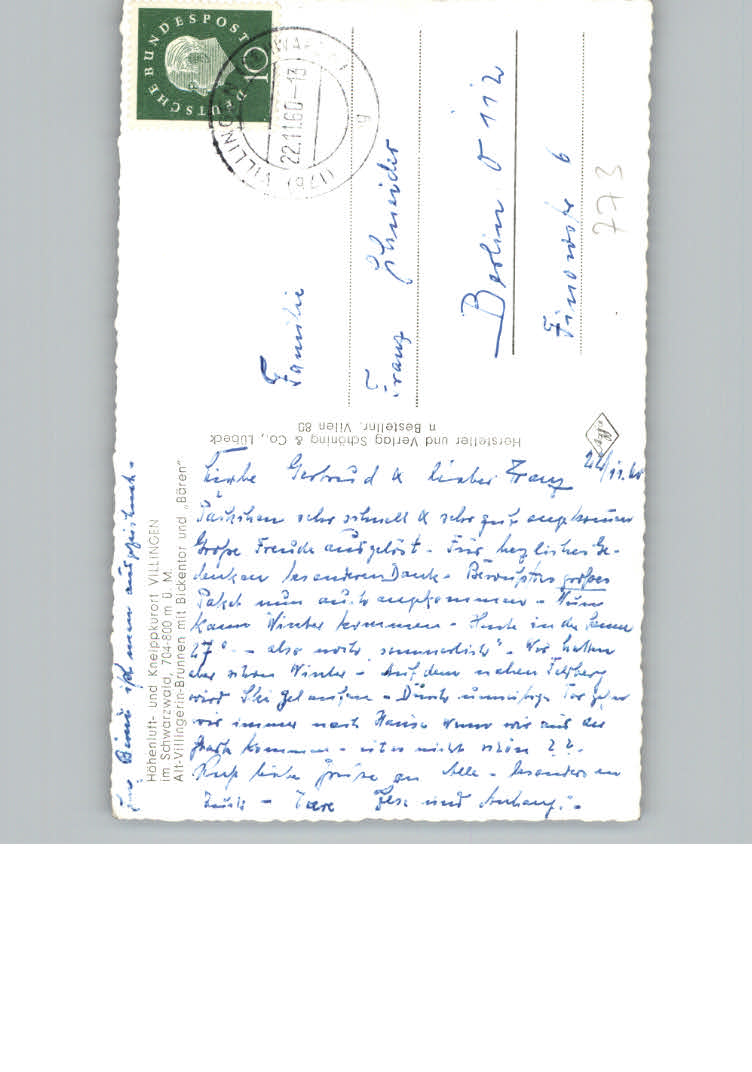 DEUTSCHE BUNDESPOST
10
VILLINGEN (SCHWARZW)
22.11.60-13
(17b)
g
Familie
Franz Schneider
Berlin O 112
Finowstr 6
773
Hersteller und Verlag Schöning & Co., Lübeck
n Bestellnr. Vilen 80
Höhenluft- und Kneippkurort VILLINGEN
im Schwarzwald, 704-800 m ü. M.
Alt-Villingerin-Brunnen mit Bickentor und „Bären"
22/11.60
Liebe Gertrud & lieber Franz
Päckchen sehr schnell & sehr gut angekommen
Große Freude ausgelöst - Für herzliches Ge-
denken besonderen Dank - großes
Paket nun auch angekommen - Nun
kann Winter kommen - Heute in der Sonne
27° - also noch "sommerlich" - Wir hatten
aber schon Winter - Auf dem nahen Feldberg
wird Ski gelaufen - Durch Tor gehen
wir immer nach Hause wenn wir aus der
Stadt kommen - ist es nicht schön ??
liebe Grüße an Alle - besonders an
Euch - Eure und Anhang -